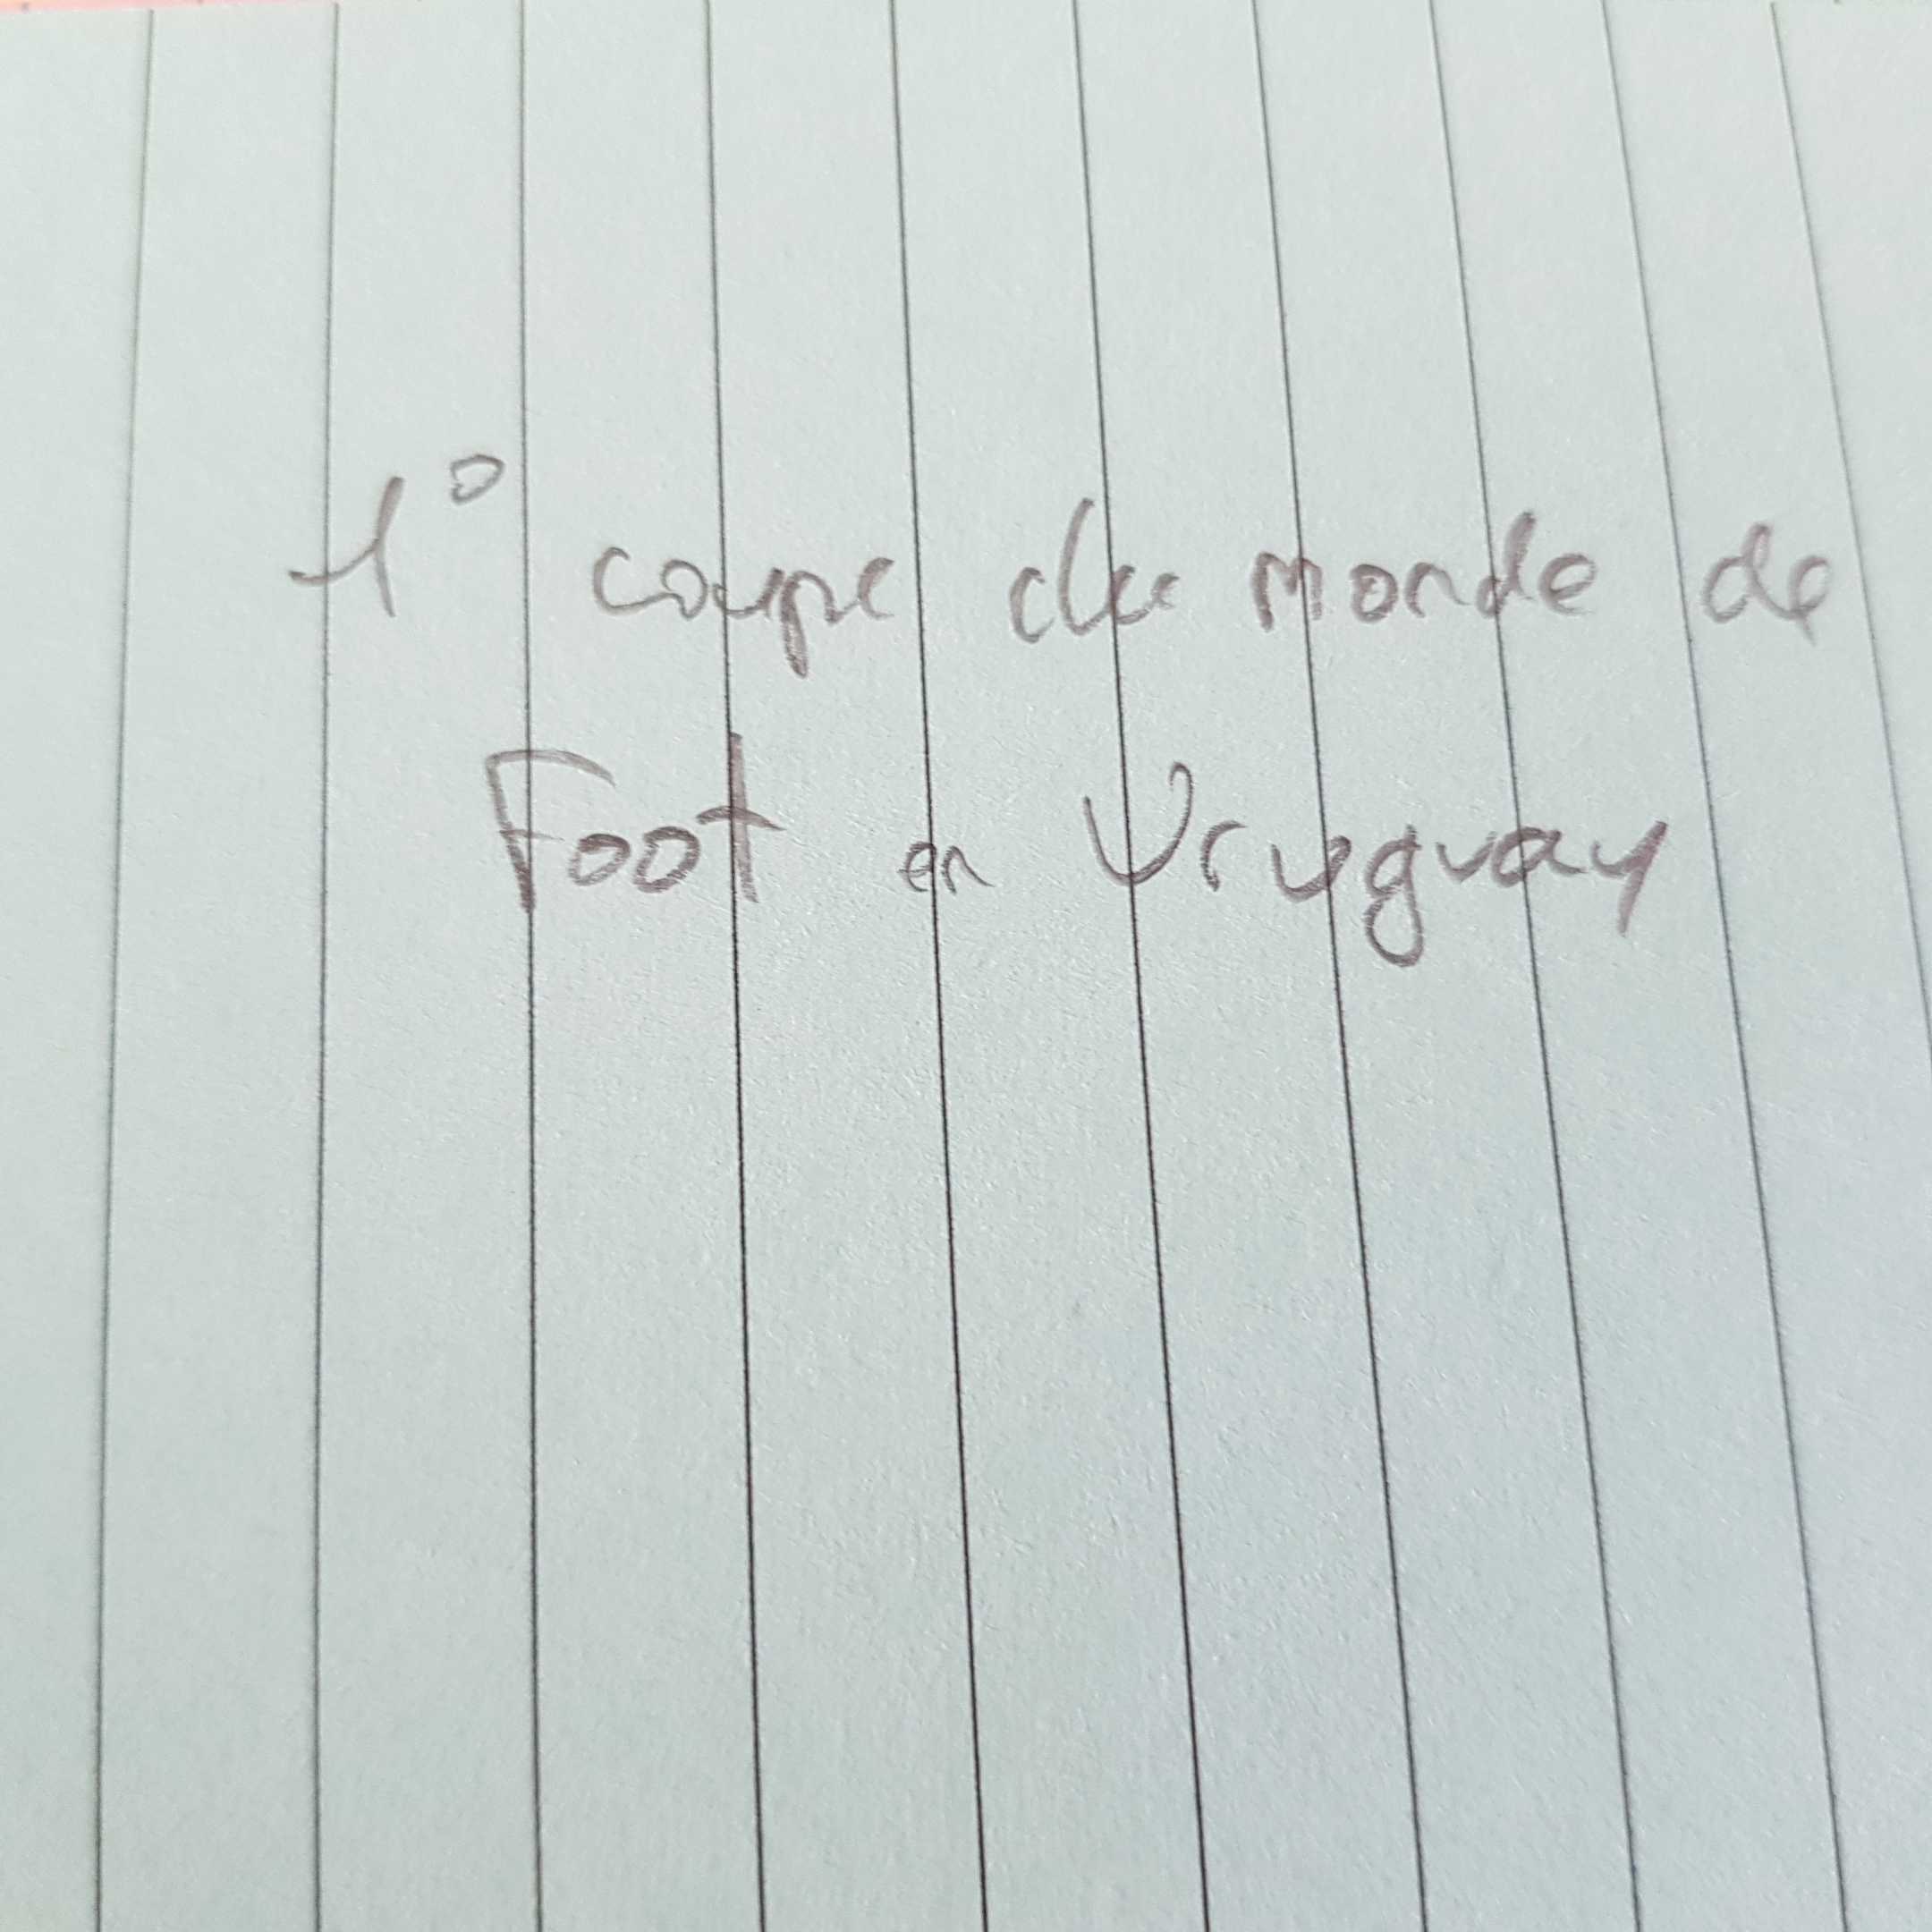 1° coupe du monde de
Foot en Uruguay